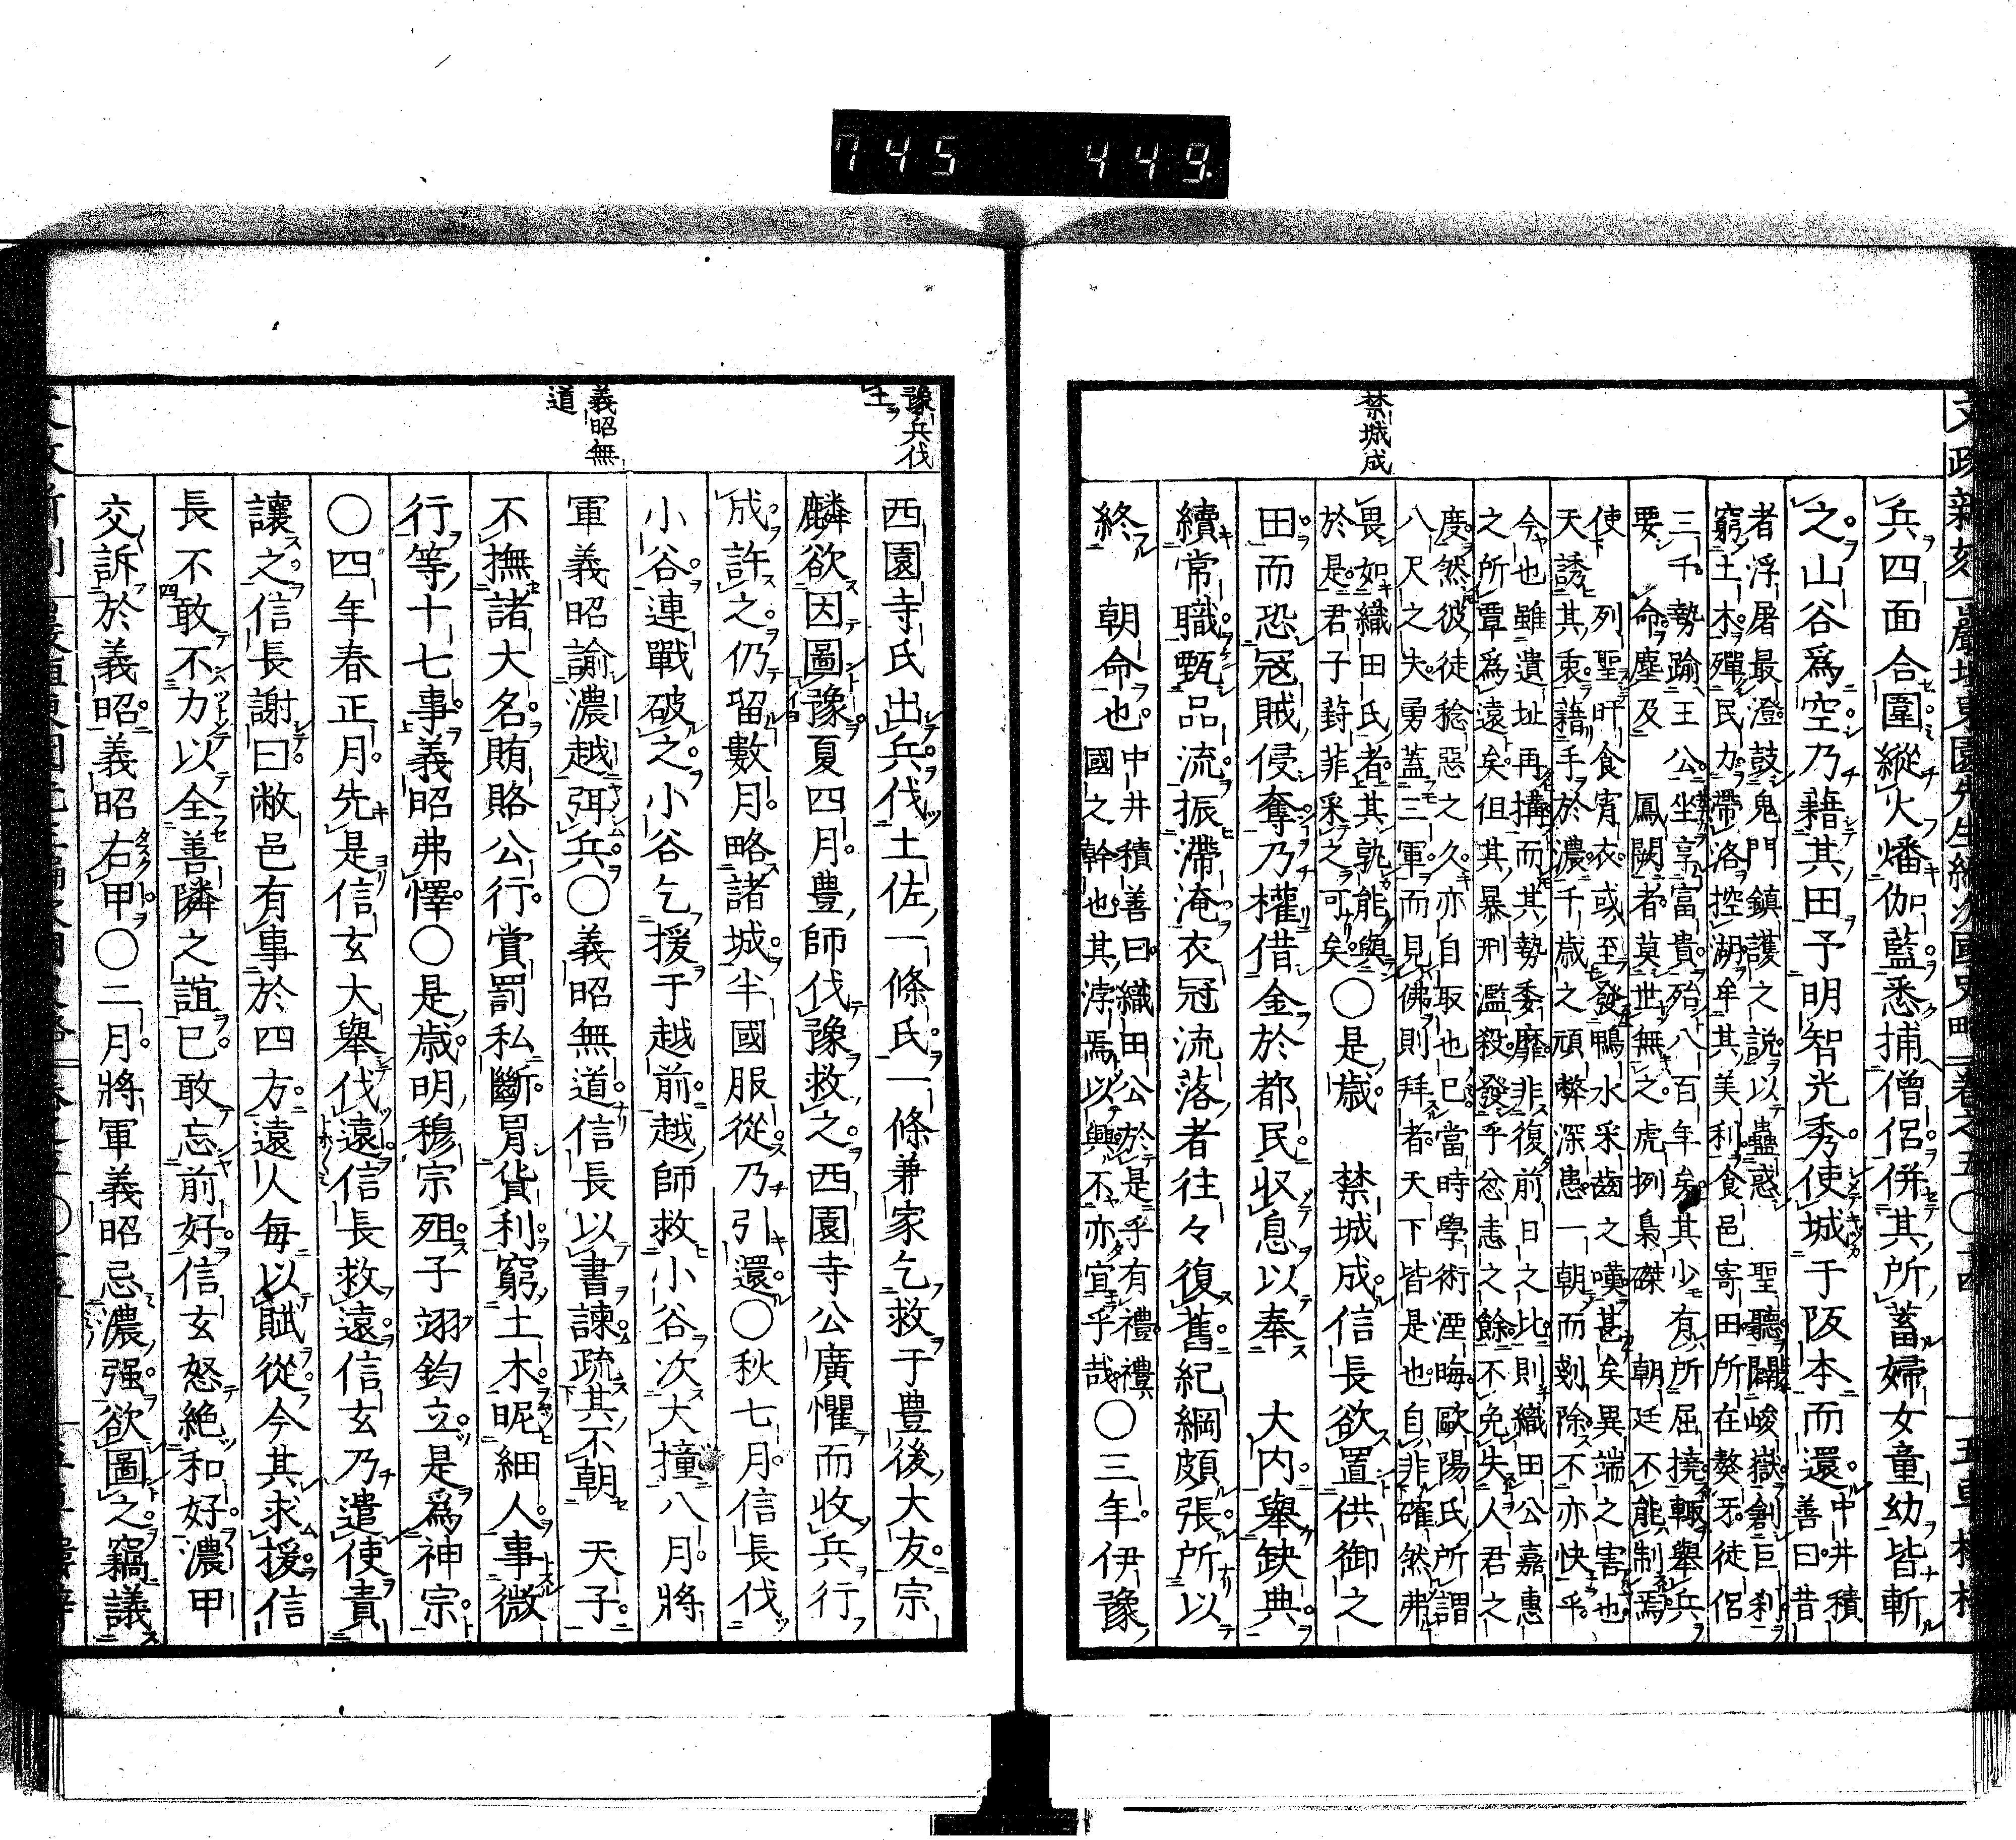 745 449.
兵四面合圍縱火燔伽藍悉捕僧侶併其所蓄婦女童幼皆斬
之山谷爲空乃藉其田予明智光秀使城于阪本而還中井積
善曰昔
者浮屠最澄鼓鬼門鎮護之説以蠱惑 聖聽闢峻嶽創巨刹
窮土木殫民力帶洛控湖牟其美利食邑寄田所在獒牙徒侶
三千勢踰王公坐享富貴殆八百年矣其少有所屈撓輙舉兵
要命塵及 鳳闕者莫世無之虎捌梟磔 朝廷不能制焉
使 列聖旰食宵衣或至發鴨水采齒之嘆甚矣異端之害也
天誘其衷藉手於濃千歳之頑弊深患一朝而剗除不亦快乎
今也雖遺址再搆而其勢委靡非復前日之比則織田公嘉惠
之所覃爲遠矣但其暴刑濫殺發乎忿恚之餘不免失人君之
度然彼徒稔惡之久亦自取也已當時學術湮晦歐陽氏所謂
八尺之夫勇蓋三軍而見佛則拜者天下皆是也自非確然弗
畏如織田氏者其孰能與
於是君子葑菲采之可矣〇是歳 禁城成信長欲置供御之
禁城成
田而恐冦賊侵奪乃權借金於都民収息以奉 大内舉缺典
續常職甄品流振滯淹衣冠流落者往々復舊紀綱頗張所以
終 朝命也中井積善曰織田公於是乎有禮禮
國之幹也其浡焉以興不亦宜乎哉〇三年伊豫
豫兵伐
土
西園寺氏出兵伐土佐一條氏一條兼家乞救于豊後大友宗
麟欲因圖豫夏四月豊師伐豫救之西園寺公廣懼而收兵行
成許之仍畱數月略諸城半國服從乃引還〇秋七月信長伐
小谷連戰破之小谷乞援于越前越師救小谷次大撞八月將
軍義昭諭濃越弭兵〇義昭無道信長以書諫疏其不朝 天子
義昭無
道
不撫諸大名賄賂公行賞罰私斷冐貨利窮土木昵細人事微
行等十七事義昭弗懌〇是歳明穆宗殂子翊鈞立是爲神宗
〇四年春正月先是信玄大舉伐遠信長救遠信玄乃遣使責
讓之信長謝曰敝邑有事於四方遠人毎以賦從今其求援信
長不敢不力以全善隣之誼已敢忘前好信玄怒絶和好濃甲
交訴於義昭義昭右甲〇二月將軍義昭忌濃强欲圖之竊議